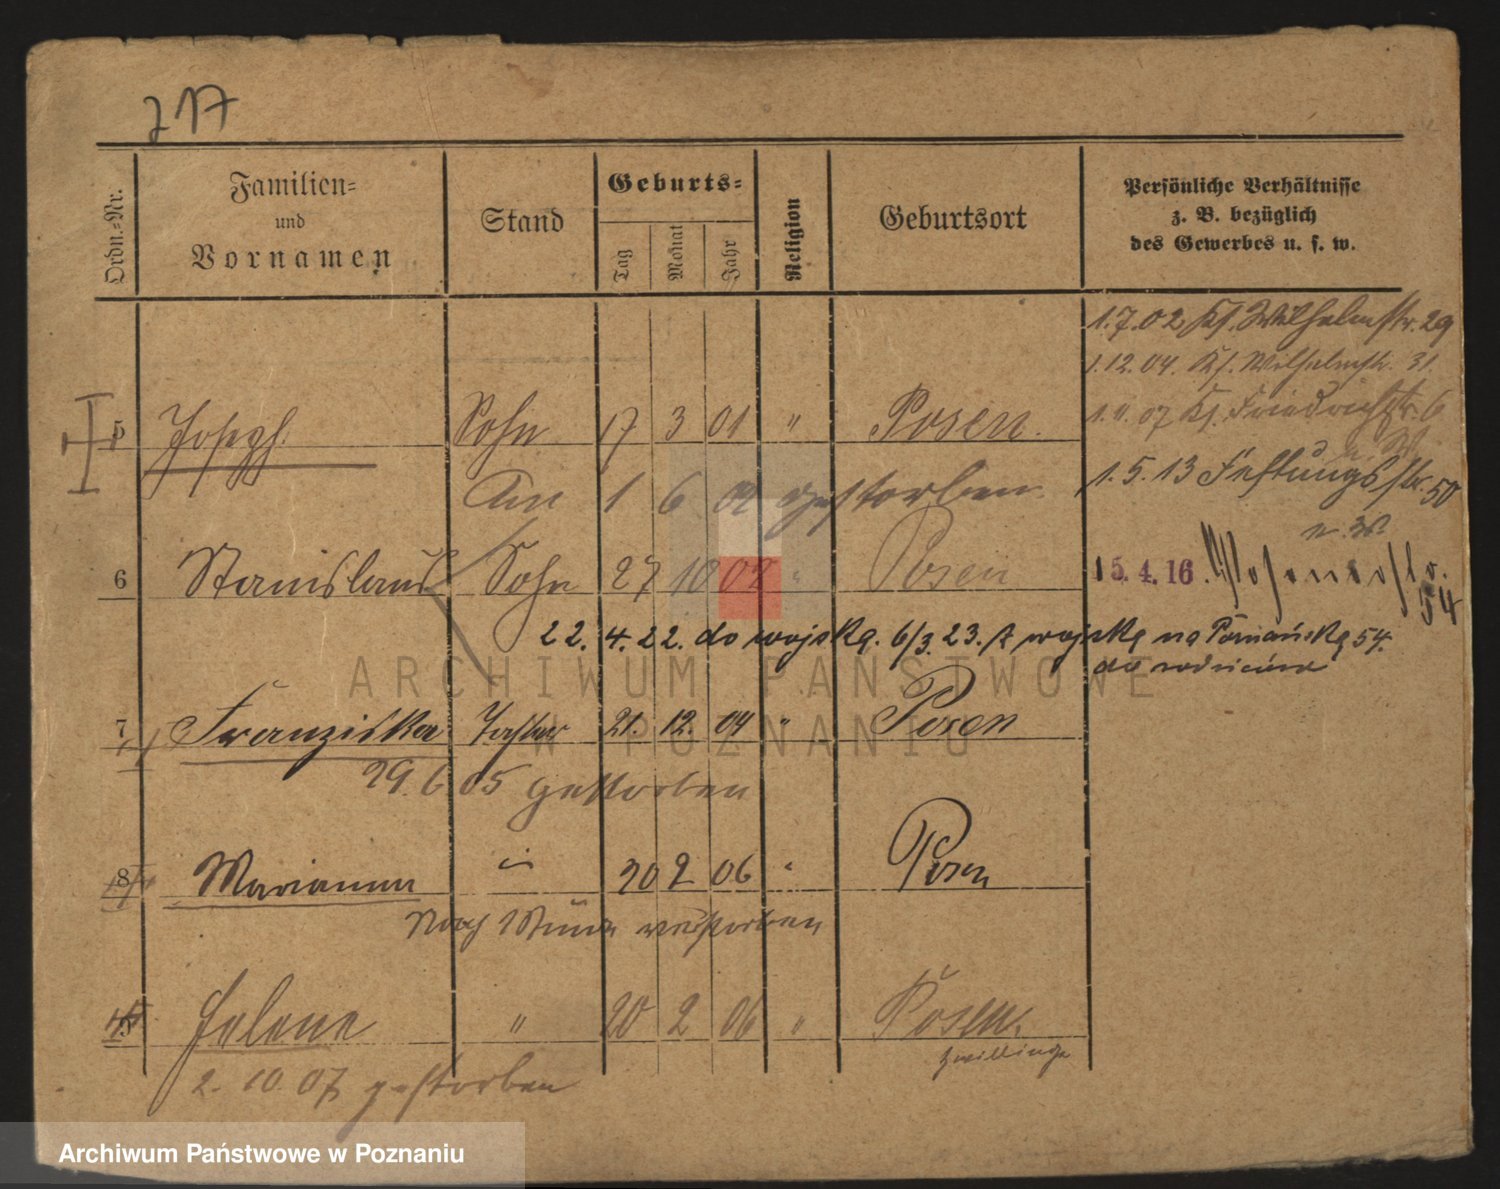 217
Ordn.-Nr.
Familien-
und
Vornamen
Stand
Geburts-
Tag
Monat
Jahr
Religion
Geburtsort
Persönliche Verhältnisse
z. B. bezüglich
des Gewerbes u. s. w.
1.7.02 Kl. Wilhelmstr. 29
1.12.04. Kl. Wilhelmstr. 31.
1. 07 Kl. Friedrichstr. 6
5 Joseph Sohn 17 3 01 " Posen.
1.5.13 Festungsstr. 50
Am 1 6 01 gestorben.
n. W.
6 Stanislaus Sohn 27 10 02 " Posen
15.4.16. Posenerstr.
54
22. 4. 22. do wojska. 6/3. 23. z wojska na Poznańską 54.
do rodziców
7 Franziska Tochter 21. 12. 04 " Posen
29. 6 05 gestorben
8 Marianna " 20 2 06 " Posen
verstorben
9 Helene " 20 2 06 " Posen.
Zwillinge
2. 10 07 gestorben
ARCHIWUM PAŃSTWOWE
W POZNANIU
Archiwum Państwowe w Poznaniu